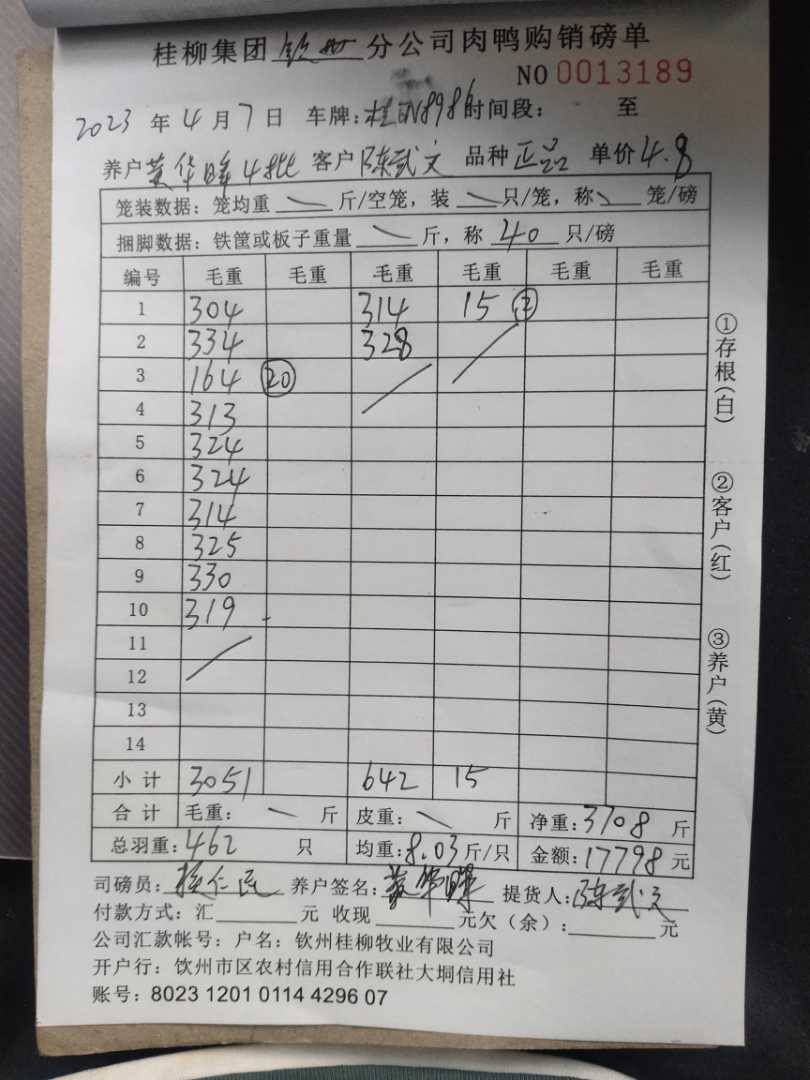 桂柳集团钦州分公司肉鸭购销磅单
NO 0013189
2023 年 4 月 7 日 车牌: 时间段: 至
养户黄华晖4批 客户陈武文 品种正品 单价4.8
笼装数据: 笼均重 ╲ 斤/空笼, 装 ╲ 只/笼, 称 ╲ 笼/磅
捆脚数据: 铁筐或板子重量 ╲ 斤, 称 40 只/磅
编号 毛重 毛重 毛重 毛重 毛重 毛重
1 304 314 15 ②
2 334 328
3 164 ⑳
4 313
5 324
6 324
7 314
8 325
9 330
10 319
11
12
13
14
小计 3051 642 15
合计 毛重: ╲ 斤 皮重: ╲ 斤 净重:3708 斤
总羽重:462 只 均重:8.03斤/只 金额:17798元
司磅员: 养户签名:黄华晖 提货人:陈武文
付款方式: 汇 元 收现 元欠(余): 元
公司汇款帐号: 户名: 钦州桂柳牧业有限公司
开户行: 钦州市区农村信用合作联社大垌信用社
账号: 8023 1201 0114 4296 07
①存根(白)
②客户(红)
③养户(黄)